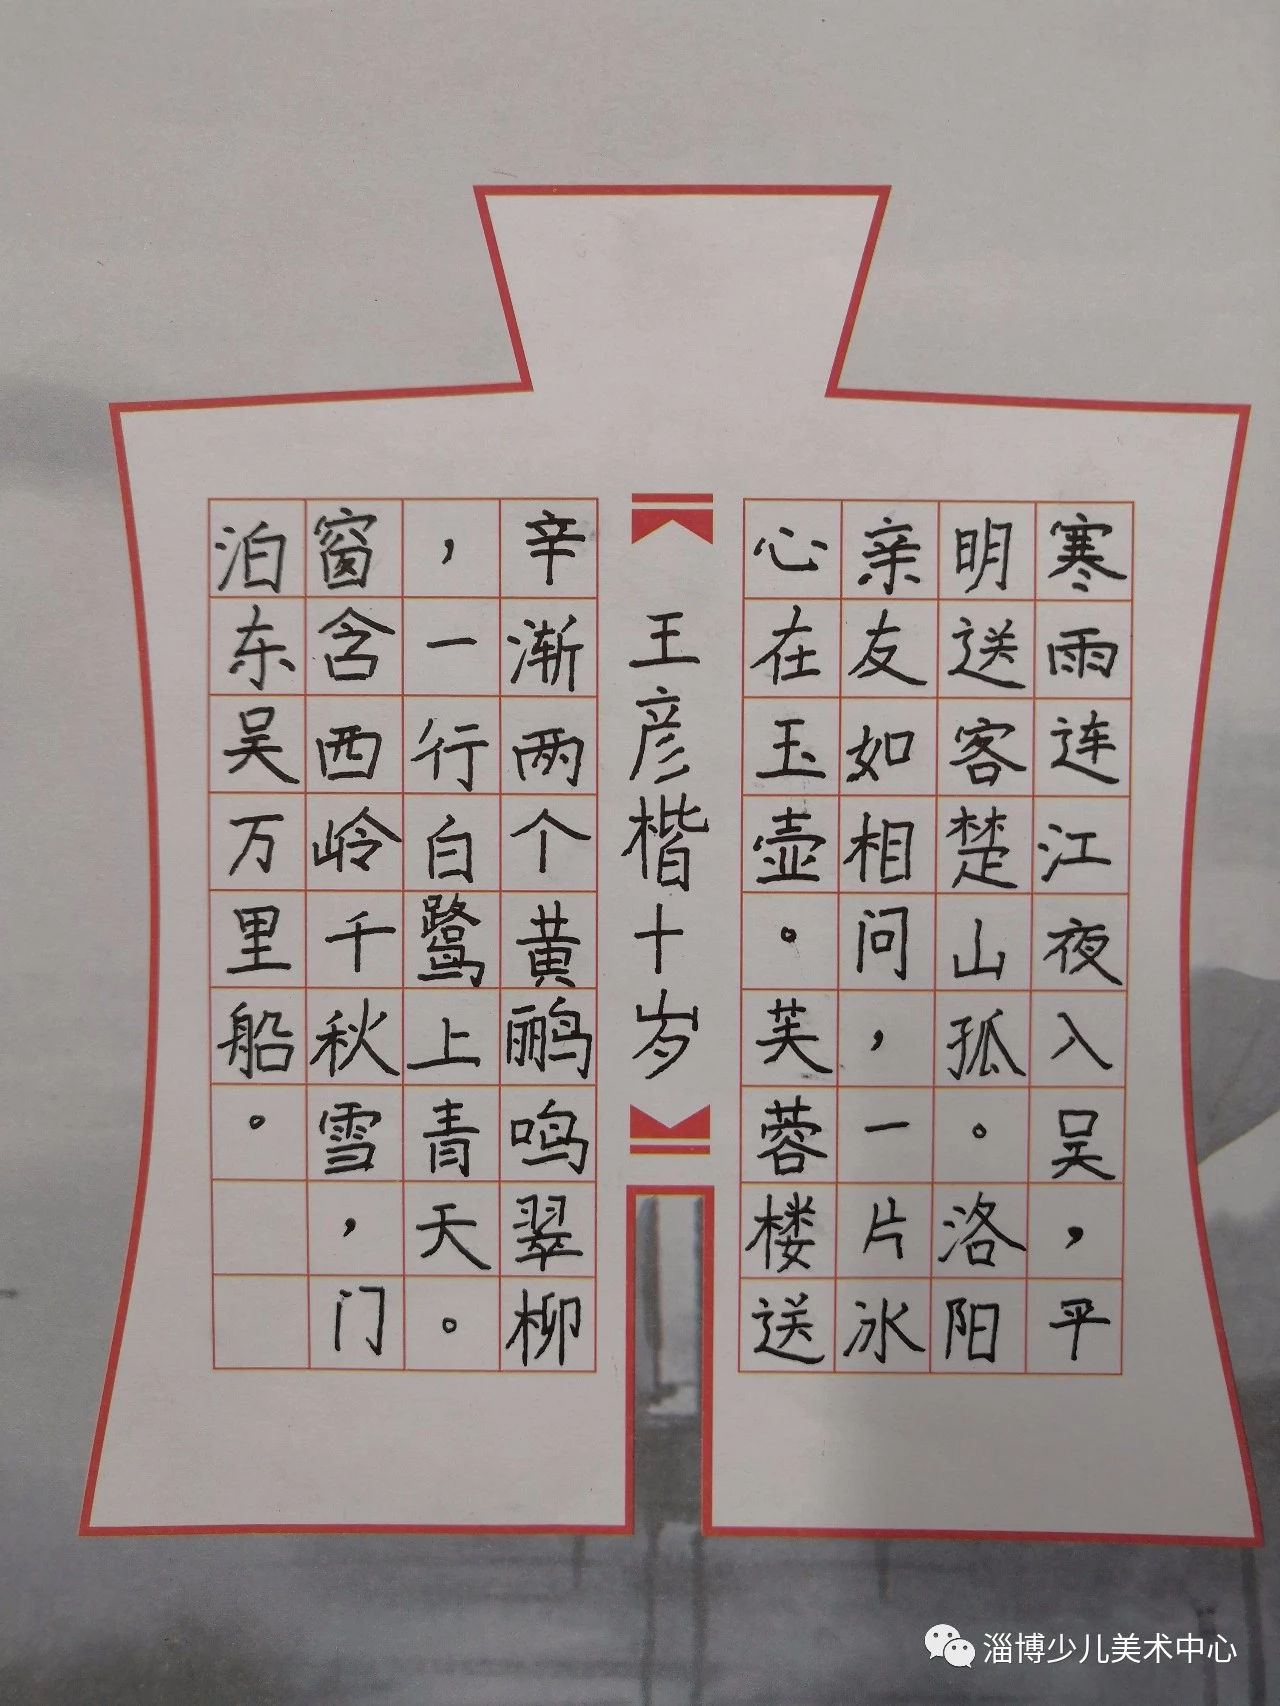 寒雨连江夜入吴，平
明送客楚山孤。洛阳
亲友如相问，一片冰
心在玉壶。芙蓉楼送
王彦楷十岁
辛渐两个黄鹂鸣翠柳
，一行白鹭上青天。
窗含西岭千秋雪，门
泊东吴万里船。
淄博少儿美术中心